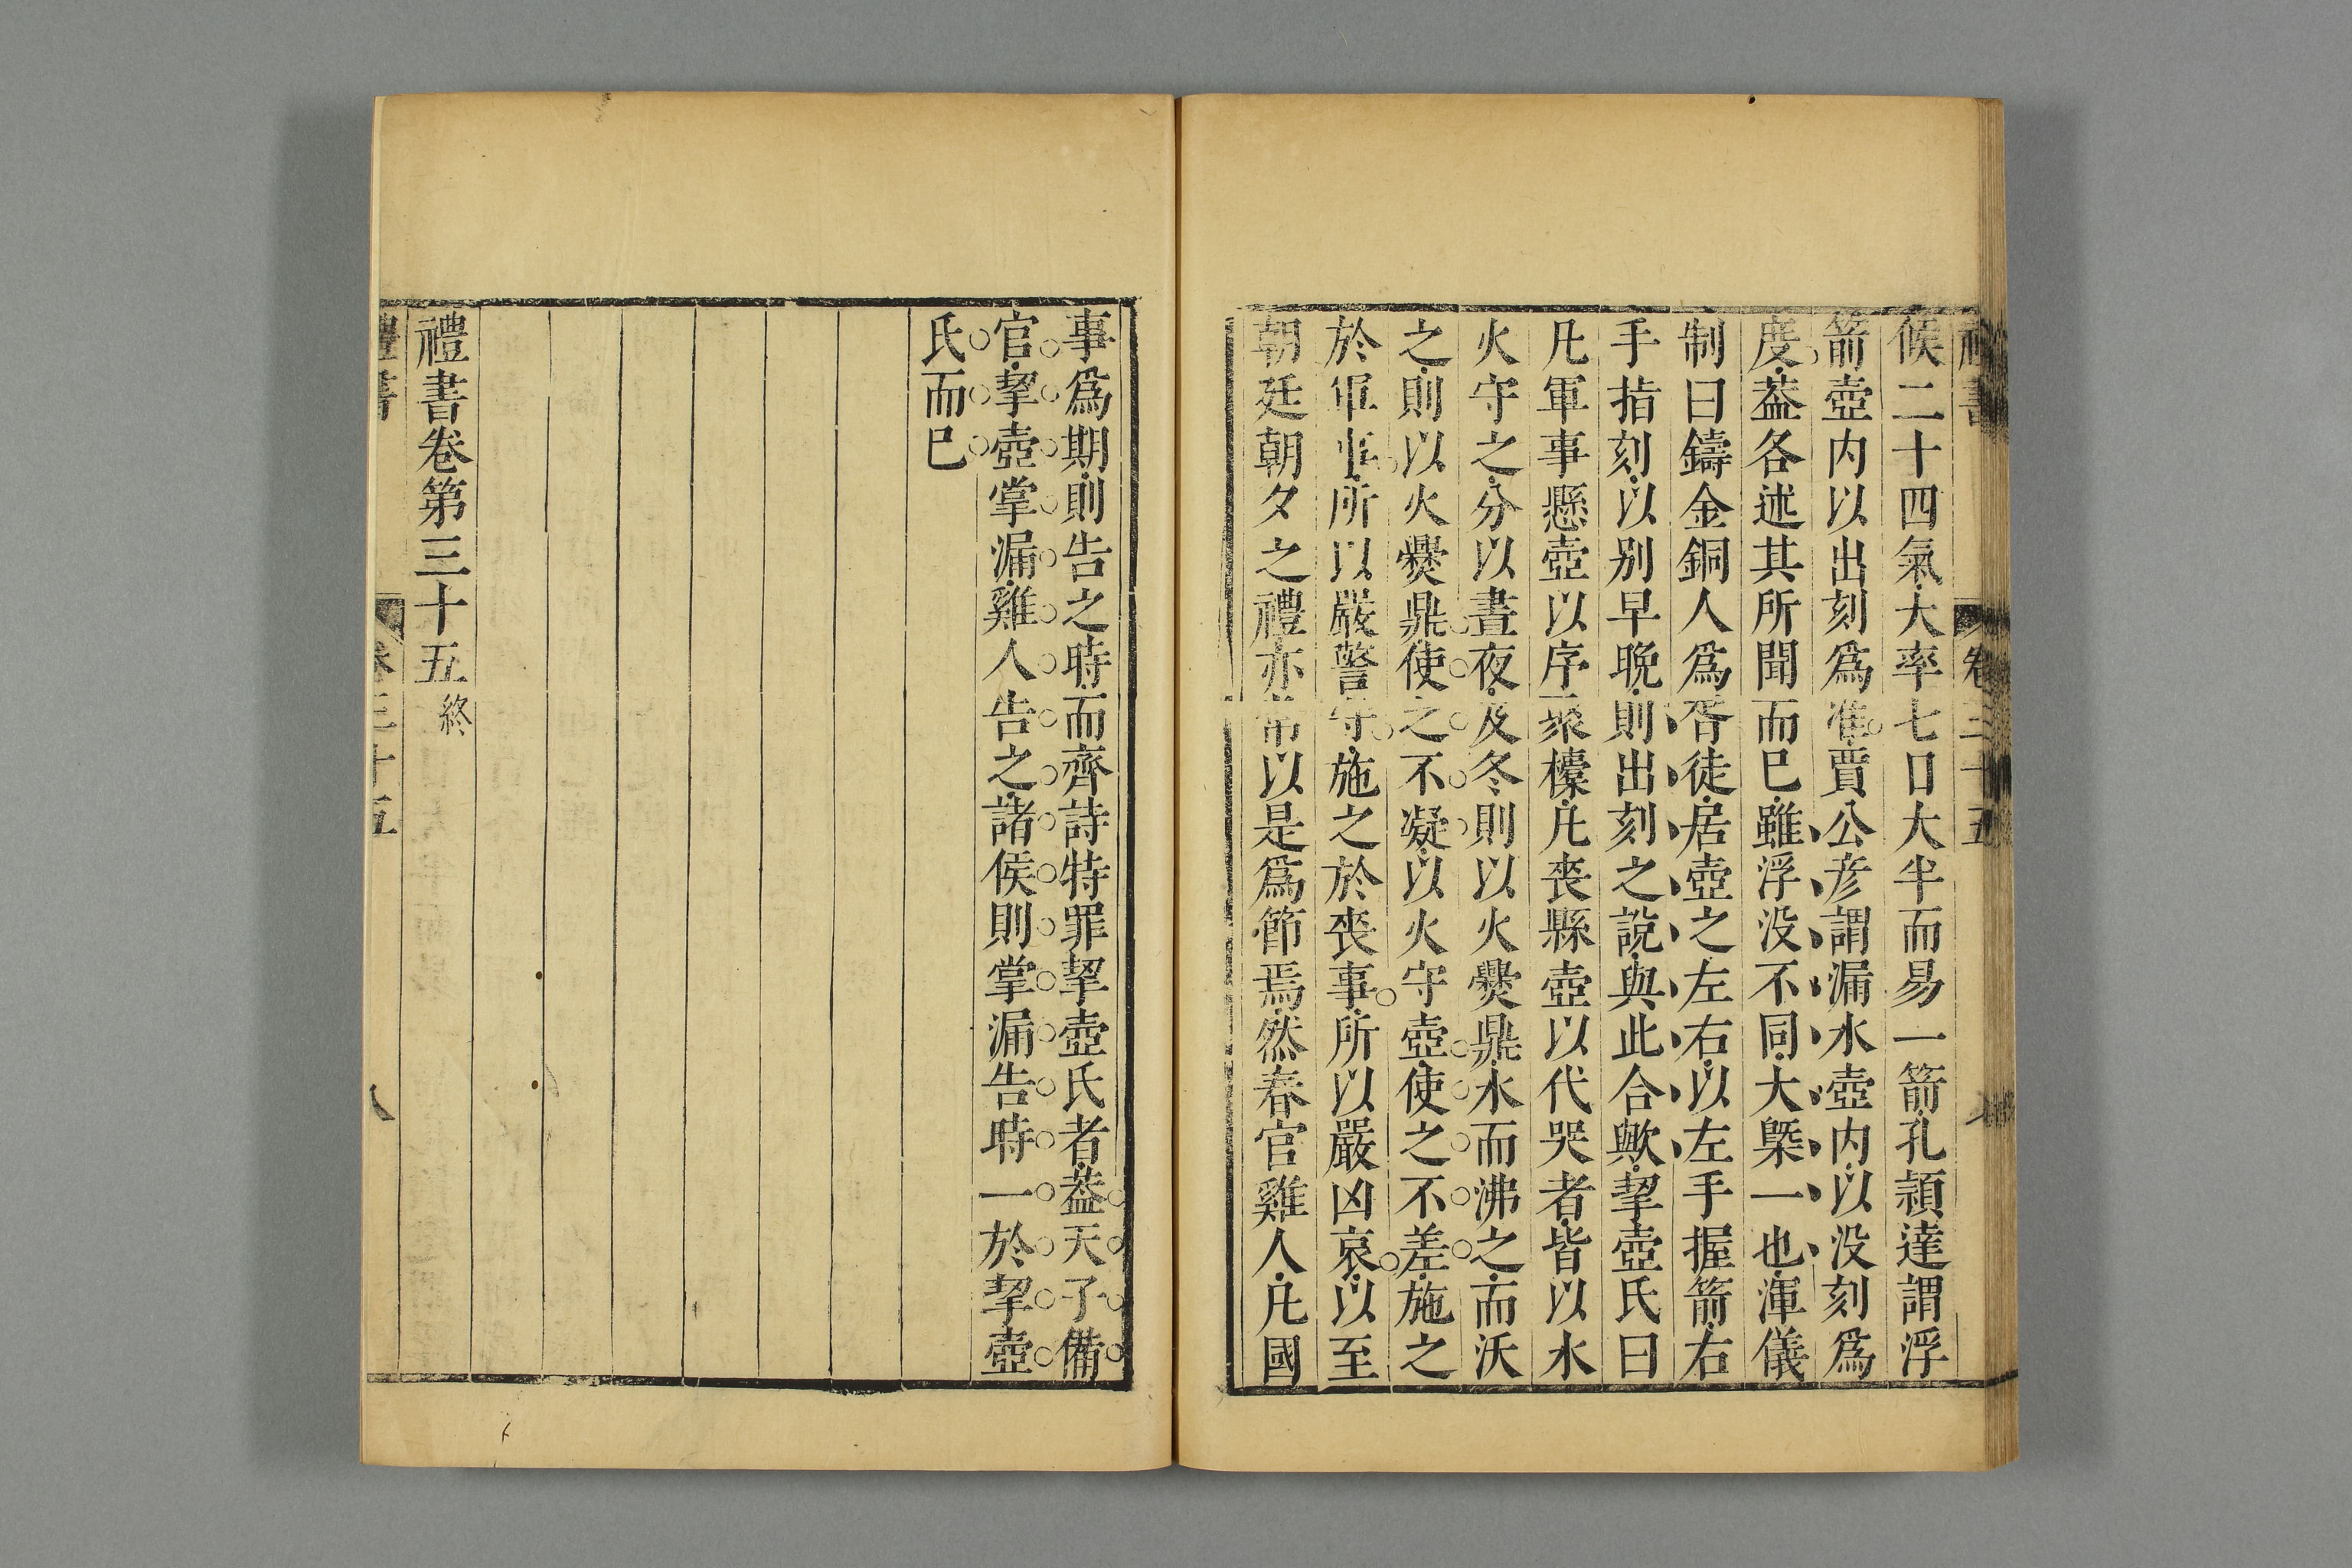 候二十四氣大率七日大半而易一箭孔頴達謂浮
箭壺内以出刻爲准賈公彦謂漏水壺内以没刻爲
度葢各述其所聞而巳雖浮没不同大槩一也渾儀
制曰鑄金銅人爲胥徒居壺之左右以左手握箭右
手指刻以别早晚則出刻之說與此合歟挈壺氏曰
凡軍事懸壺以序聚檬凡喪縣壺以代哭者皆以水
火守之分以晝夜及冬則以火爨鼎水而沸之而沃
之則以火爨鼎使之不凝以火守壺使之不差施之
於軍事所以嚴警守施之於喪事所以嚴凶哀以至
朝廷朝夕之禮亦常以是爲節焉然春官雞人凡國
事爲期則告之時而齊詩特罪挈壺氏者葢天子備
官挈壺掌漏雞人告之諸侯則掌漏告時一於挈壺
氏而巳
禮書卷第三十五終
禮書 卷三十五 八